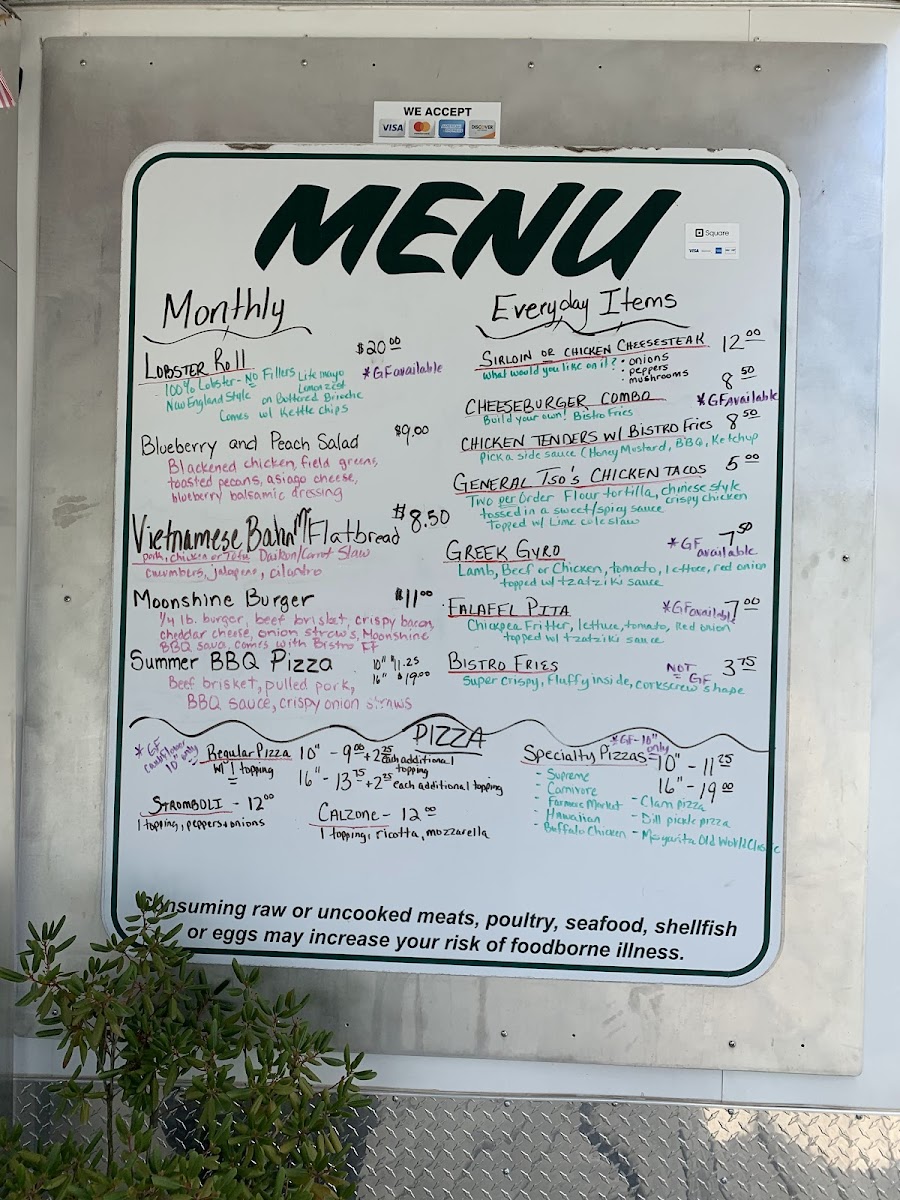 WE ACCEPT
VISA MasterCard AMERICAN EXPRESS DISCOVER
MENU
Square
VISA
Monthly
LOBSTER Roll $20.00
100% Lobster - NO Fillers Lite mayo Lemon zest
*GF available
New England Style on Buttered Brioche
Comes w/ Kettle chips
Blueberry and Peach Salad $9.00
Blackened chicken, field greens,
toasted pecans, asiago cheese,
blueberry balsamic dressing
Vietnamese Bahn Mi Flatbread $8.50
pork, chicken or Tofu Daikon/Carrot Slaw
cucumbers, jalapeno, cilantro
Moonshine Burger $11.00
1/4 lb. burger, beef brisket, crispy bacon,
cheddar cheese, onion straws, Moonshine
BBQ sauce, comes with Bistro FF
Summer BBQ Pizza 10" $11.25
16" $19.00
Beef brisket, pulled pork,
BBQ sauce, crispy onion straws
Everyday Items
SIRLOIN OR CHICKEN CHEESESTEAK 12.00
What would you like on it? • onions
• peppers
• mushrooms
CHEESEBURGER COMBO 8.50
*GF available
Build your own! Bistro Fries
CHICKEN TENDERS W/ BISTRO Fries 8.50
Pick a side sauce (Honey Mustard, BBQ, Ketchup
GENERAL TSO'S CHICKEN TACOS 5.00
Two per Order Flour tortilla, chinese style
crispy chicken
tossed in a sweet/spicy sauce
Topped w/ Lime coleslaw
GREEK GYRO *GF available 7.50
Lamb, Beef or Chicken, tomato, lettuce, red onion
topped w/ tzatziki sauce
FALAFEL PITA *GF available 7.00
Chickpea Fritter, lettuce, tomato, Red onion
topped w/ tzatziki sauce
BISTRO FRIES NOT GF 3.75
super crispy, fluffy inside, corkscrew shape
PIZZA
*GF Cauliflower 10" only
Regular Pizza 10" - 9.00 + 2.25 each additional topping
w/ 1 topping
16" - 13.75 + 2.25 each additional topping
STROMBOLI - 12.00
1 topping, peppers + onions
CALZONE - 12.00
1 topping, ricotta, mozzarella
*GF - 10" only
Specialty Pizzas - 10" - 11.25
16" - 19.00
- Supreme
- Carnivore
- Farmers Market
- Hawaiian
- Buffalo Chicken
- Clam pizza
- Dill pickle pizza
- Margarita Old World Classic
Consuming raw or uncooked meats, poultry, seafood, shellfish
or eggs may increase your risk of foodborne illness.